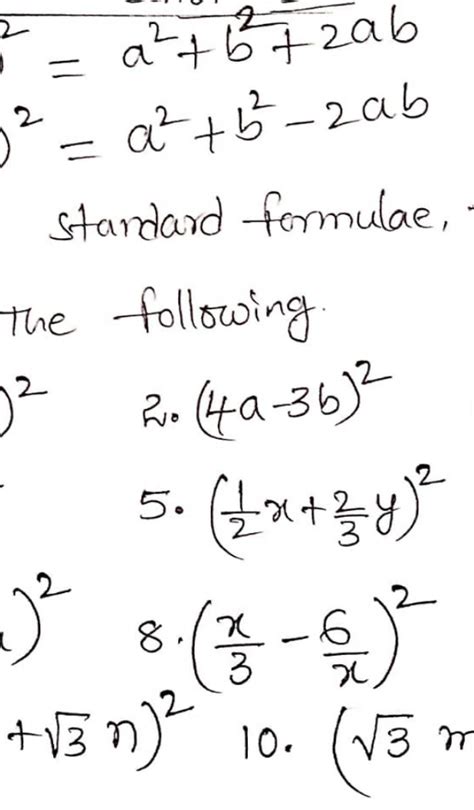 ² = a² + b² + 2ab
)² = a² + b² - 2ab
standard formulae,
The following.
)² 2. (4a-3b)²
5. (1/2 x + 2/3 y)²
)² 8. (x/3 - 6/x)²
+√3 n)² 10. (√3 m